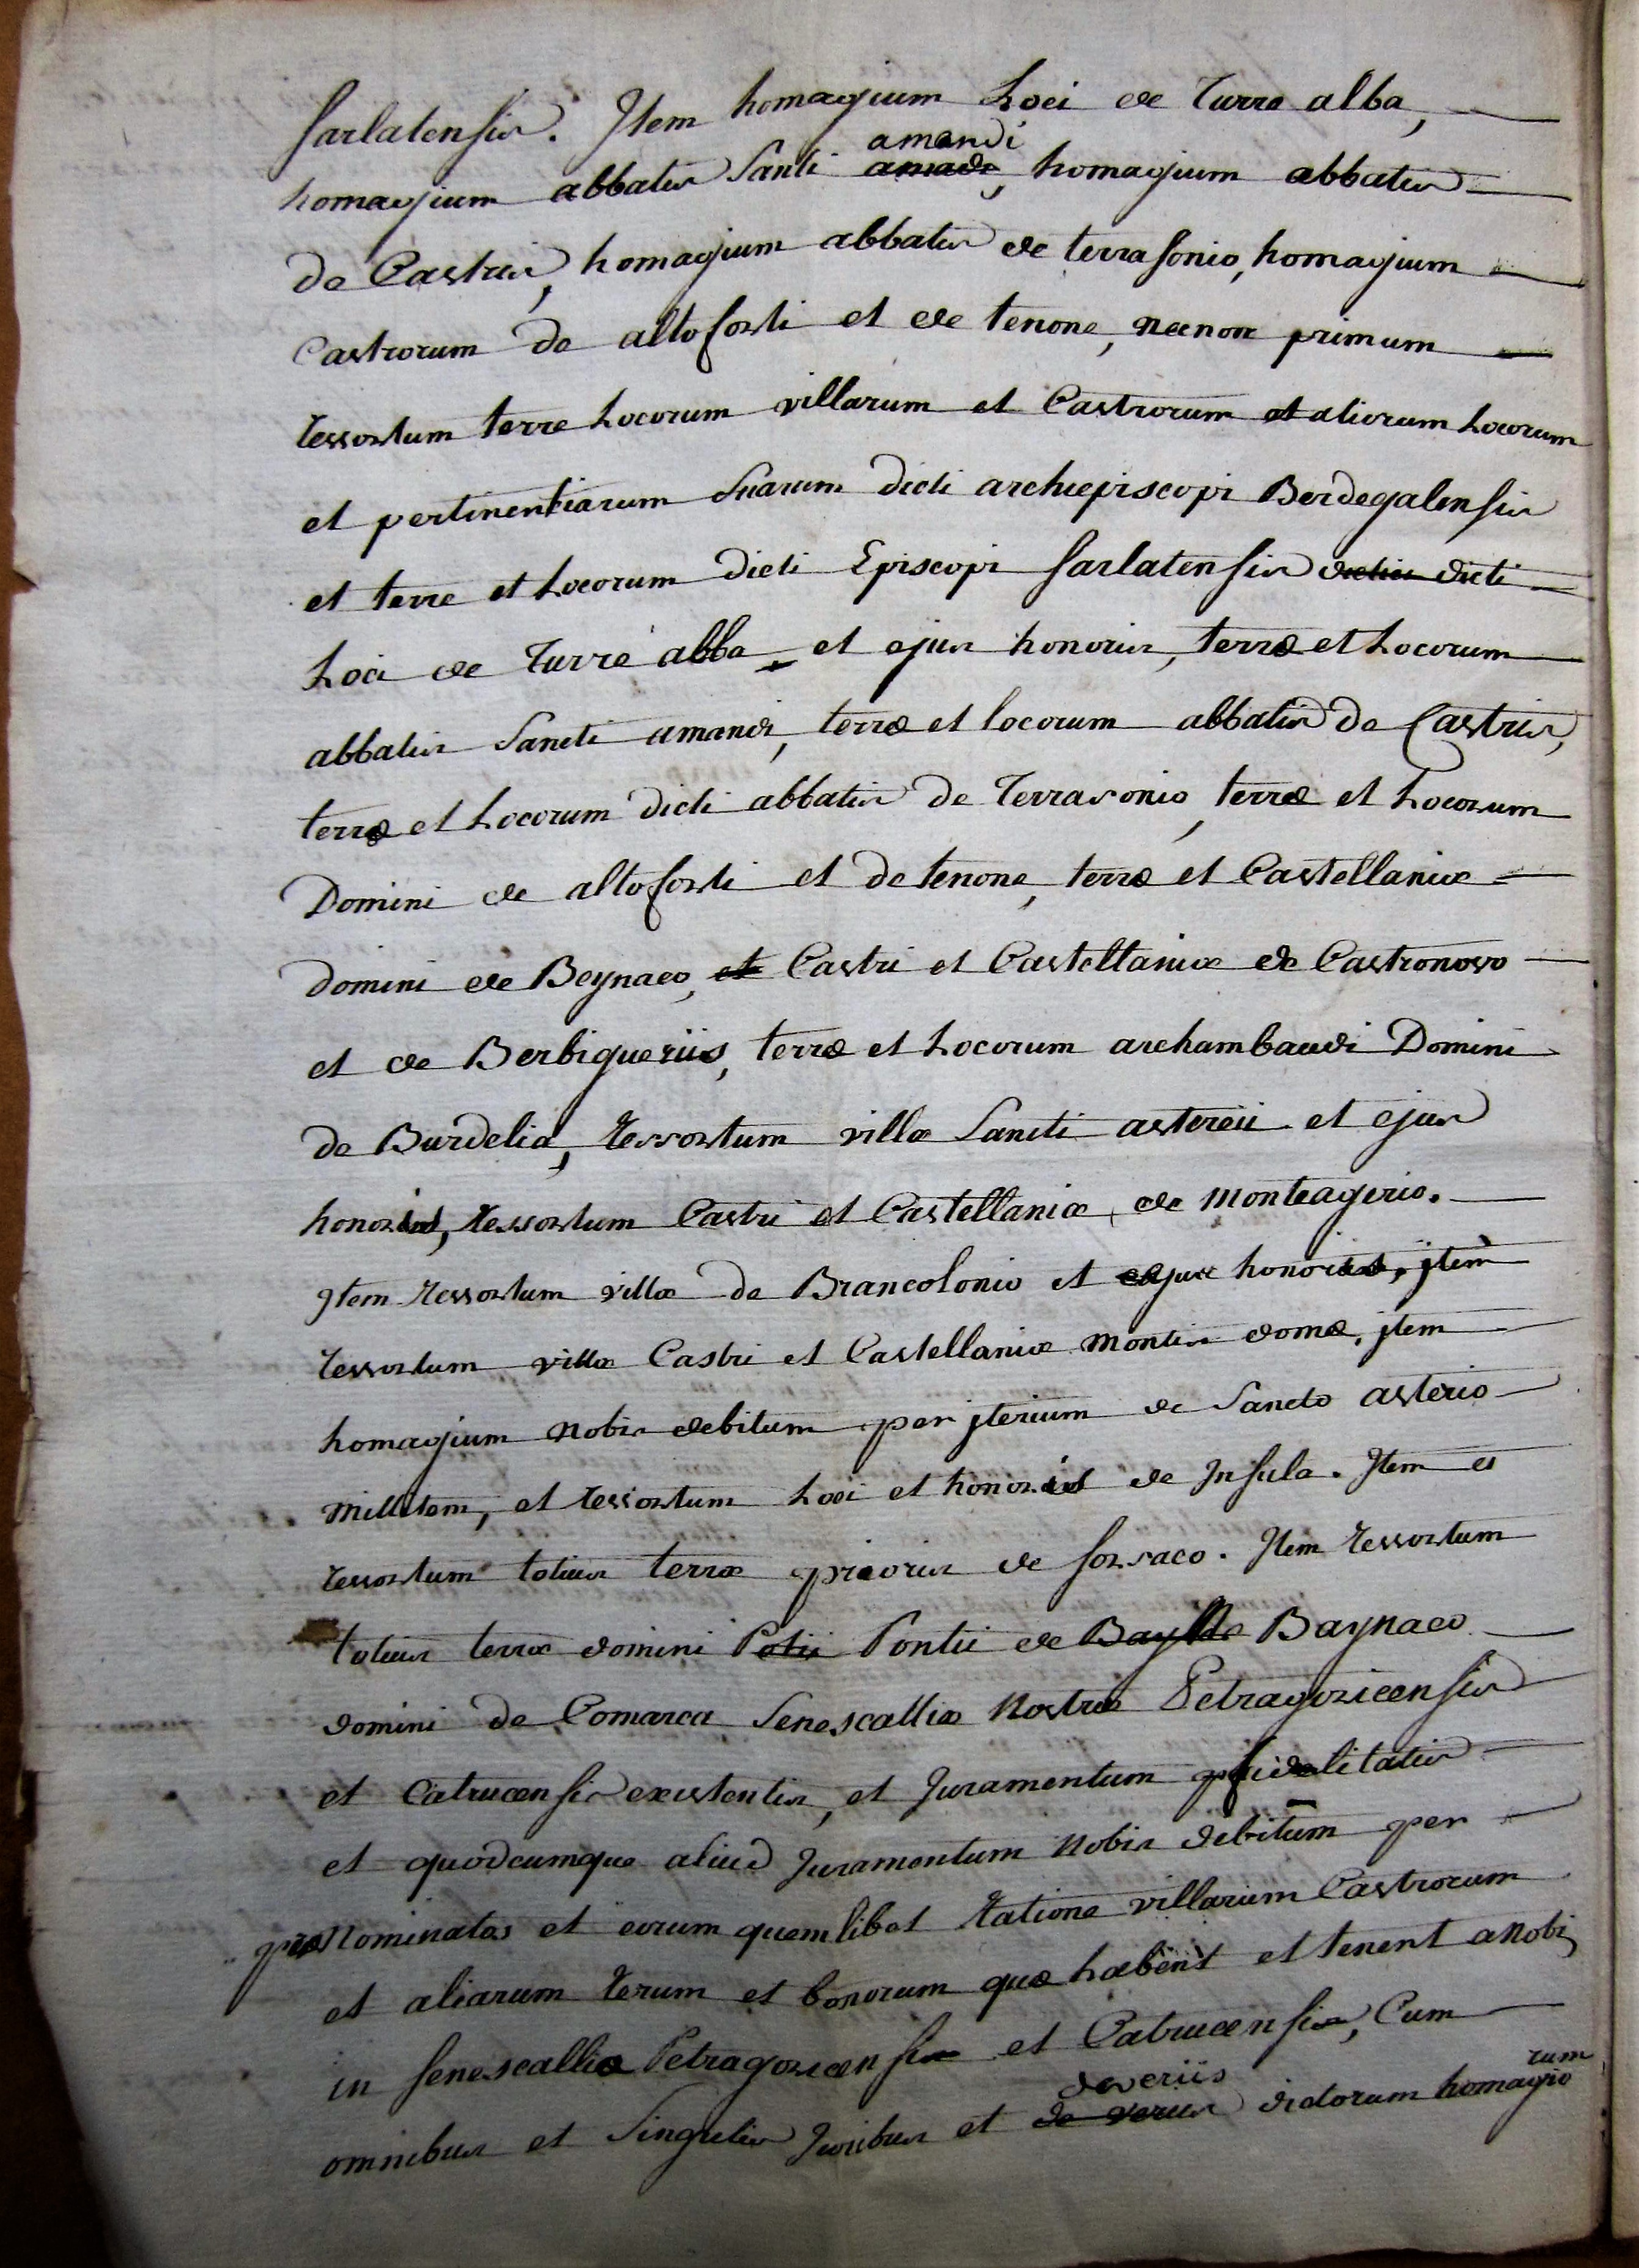 sarlatensis. Item homagium Loci de Turre alba,
amandi
homagium abbatis Santi amadi, homagium abbatis
de Castris, homagium abbatis de terrasonio, homagium
Castrorum de altoforti et de tenone, necnon primum
ressortum terre Locorum villarum et Castrorum et aliorum Locorum
et pertinentiarum suarum dicti archiepiscopi Berdegalensis
et terre et Locorum dicti Episcopi sarlatensis dictis dicti
Loci de Turre abba et ejus honoris, terræ et Locorum
abbatis Sancti amandi, terræ et locorum abbatis de Castris,
terræ et Locorum dicti abbatis de Terrasonio, terræ et Locorum
Domini de altoforti et de tenone, terræ et Castellaniæ
domini de Beynaco, et Castri et Castellaniæ de Castronovo
et de Berbigueriis, terræ et Locorum archambaudi Domini
de Burdelia, ressortum villæ Sancti asterii et ejus
honoris, ressortum Castri et Castellaniæ de monteagerio.
Item ressortum villæ de Brancolonio et ejus honoris, jtem
ressortum villæ Castri et Castellaniæ montis domæ, jtem
homagium nobis debitum per jterium de Sancto asterio
militem, et ressortum Loci et honoris de Insula. Item et
ressortum totius terræ prioris de sorsaco. Item ressortum
totius terræ domini Potii Pontii de Baynaco
domini de Comarca Senescalliæ nostræ Petragoricensis
et Catrucensis existentis, et Juramentum fidelitatis
et quodcumque aliud Juramentum nobis debitum per
prænominatos et eorum quemlibet ratione villarum Castrorum
et aliarum rerum et bonorum quæ habent et tenent a nobis
in senescallia Petragoricensi et Catrucensi, Cum
deveriis rum
omnibus et Singulis Juribus et de veriis dictorum homagio